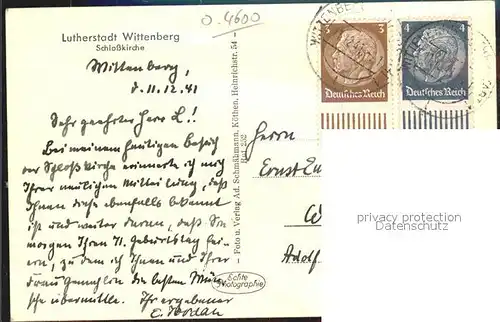 O-4600
Lutherstadt Wittenberg
Schloßkirche
Wittenberg,
d. 11.12.41
Sehr geehrter Herr L!!
Bei meinem heutigen Besuch
der Schloßkirche erinnerte ich mich
Ihrer neulichen Mitteilung, daß
Ihnen diese ebenfalls bekannt
ist und weiter daran, daß Sie
morgen Ihren 71. Geburtstag fei-
ern, zu dem ich Ihnen und Ihrer
Frau Gemahlin die besten Wün-
sche übermittle. Ihr ergebener
Echte
Photographie
– Foto u. Verlag Ad. Schmähmann, Köthen, Heinrichstr. 54 –
WITTENBERG
3
Deutsches Reich
4
Deutsches Reich
Herrn
Ernst
W
Adolf
privacy protection
Datenschutz